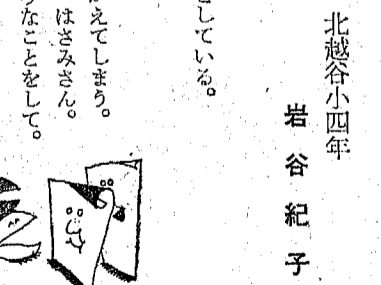 北越谷小四年
岩谷紀子
としている。
えてしまう。
はさみさん。
なことをして。